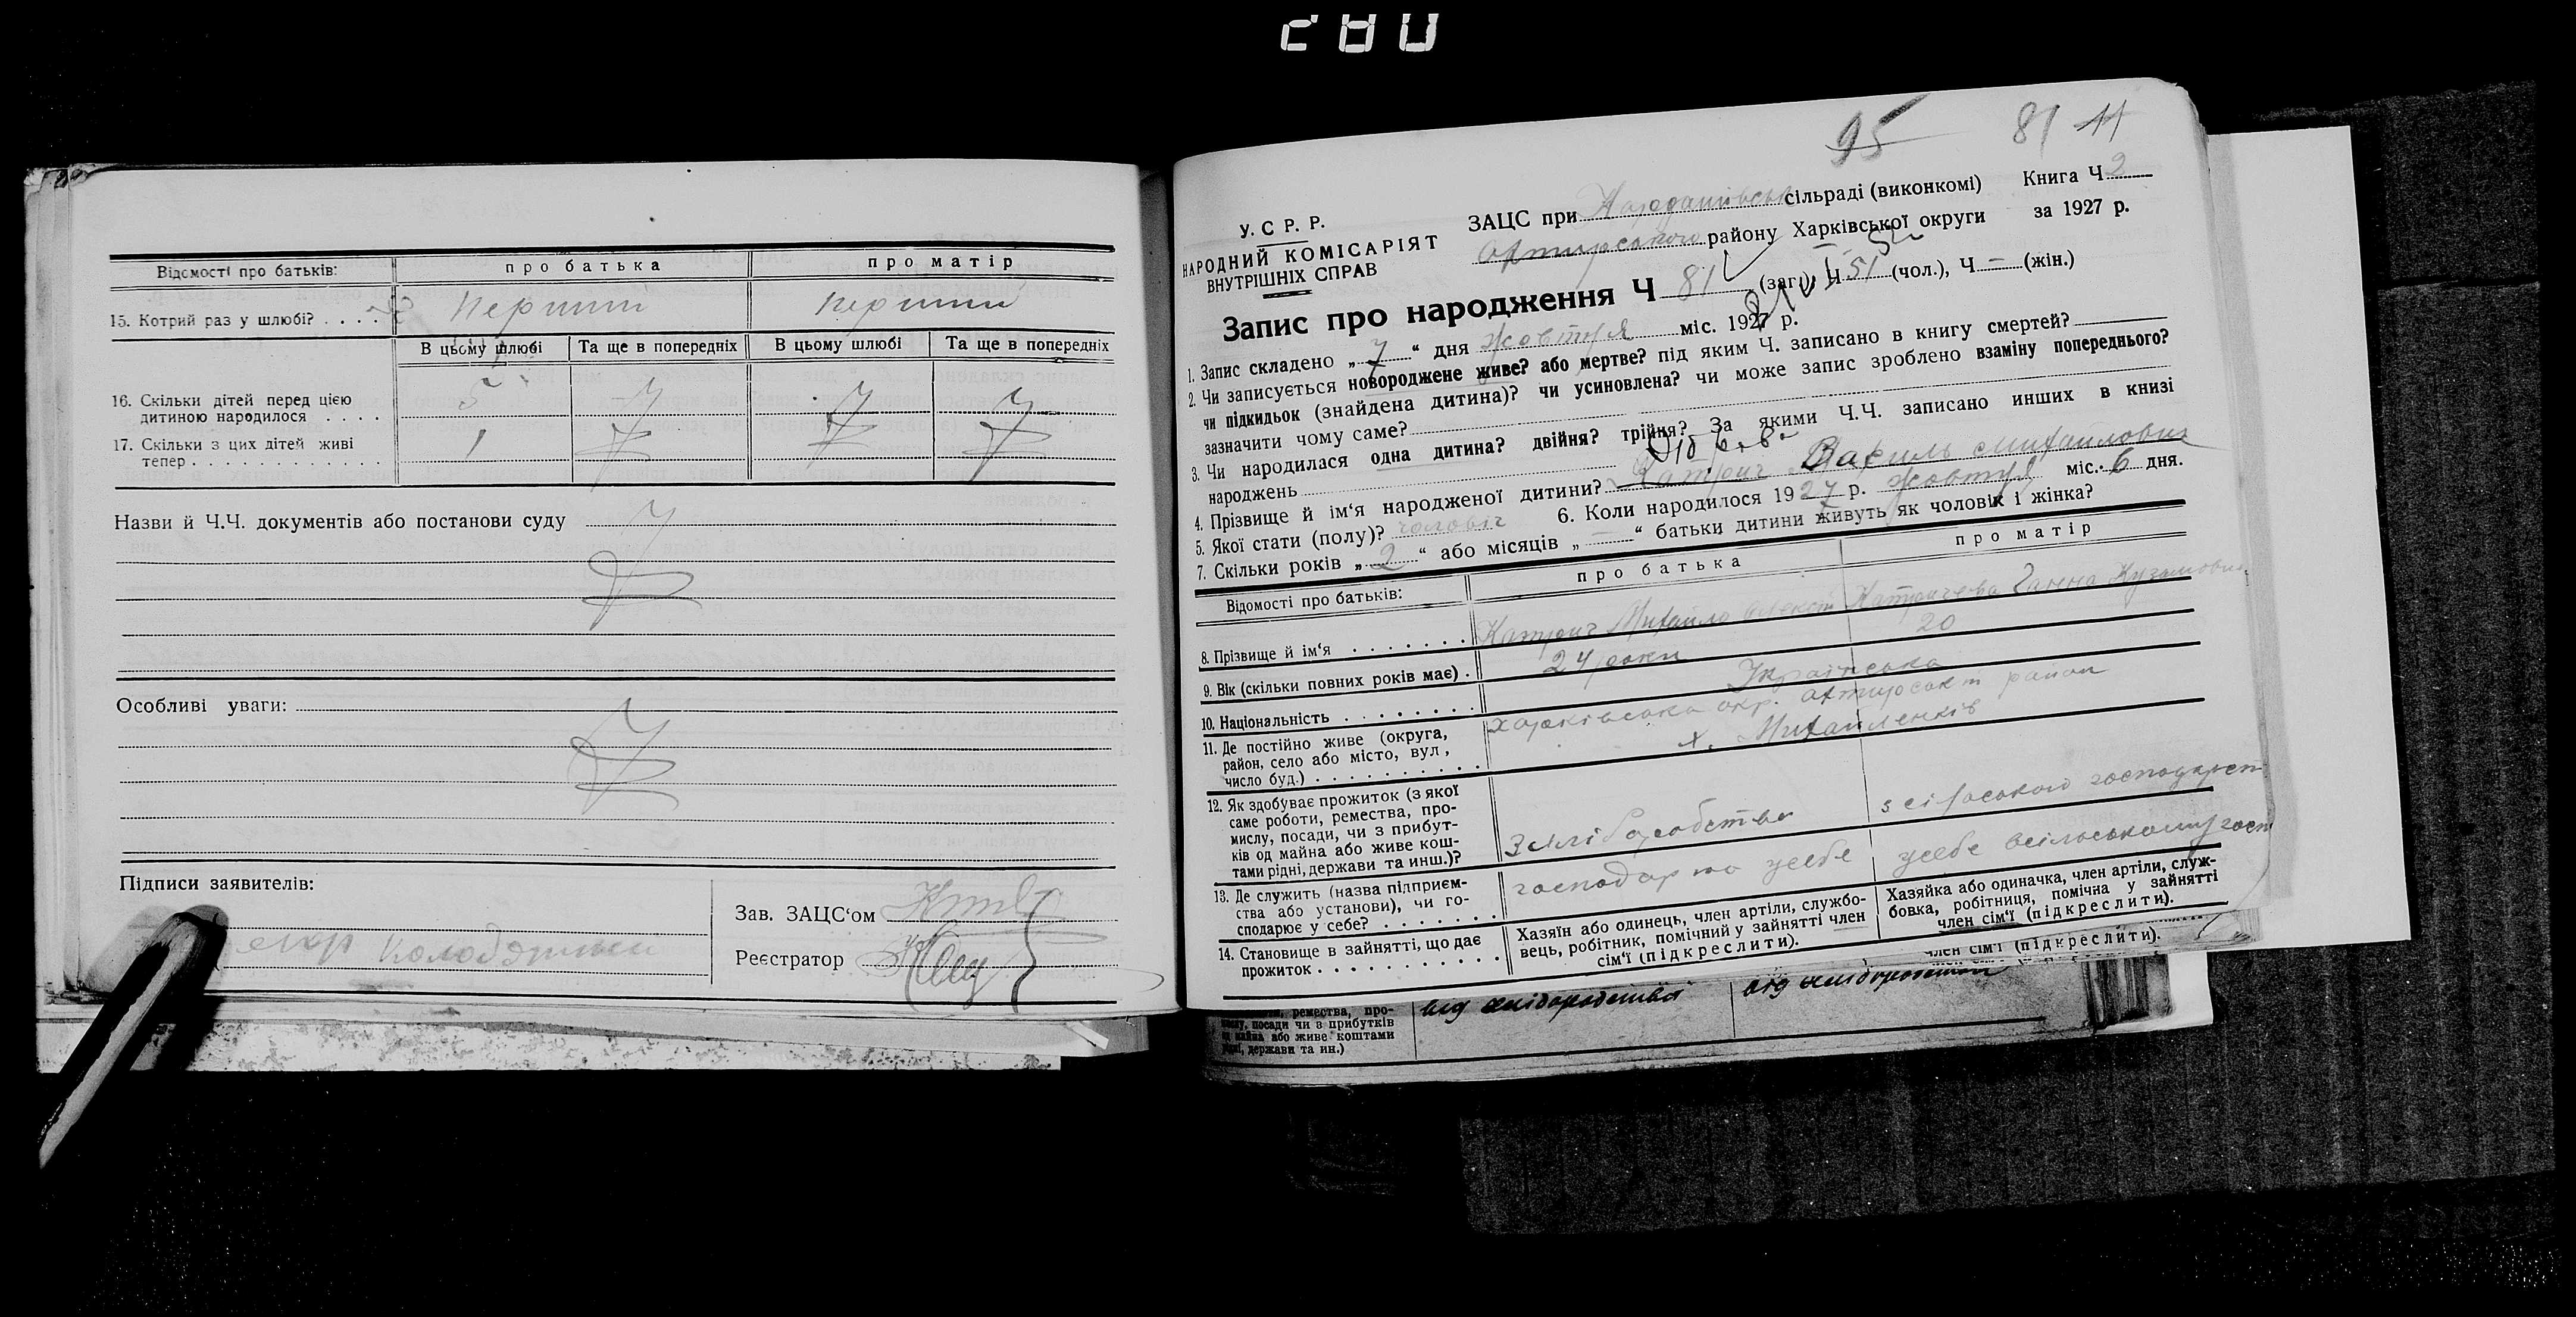 280
Відомості про батьків: про батька про матір
15. Котрий раз у шлюбі? . . . . перший перший
В цьому шлюбі Та ще в попередніх В цьому шлюбі Та ще в попередніх
16. Скільки дітей перед цією
дитиною народилося . . . .
17. Скільки з цих дітей живі
тепер . . . . . . . . . . . . . 1
Назви й Ч.Ч. документів або постанови суду
Особливі уваги:
Підписи заявителів:
Зав. ЗАЦС‘ом
Реєстратор
95 81 11
У. С Р. Р.
НАРОДНИЙ КОМІСАРІЯТ
ВНУТРІШНІХ СПРАВ
ЗАЦС при сільраді (виконкомі) Книга Ч 2
району Харківської округи за 1927 р.
Запис про народження Ч 81 (заг.), Ч 51 (чол.), Ч – (жін.)
1. Запис складено „ 7 “ дня жовтня міс. 1927 р.
2. Чи записується новороджене живе? або мертве? під яким Ч. записано в книгу смертей?
чи підкидьок (знайдена дитина)? чи усиновлена? чи може запис зроблено взаміну попереднього?
зазначити чому саме?
3. Чи народилася одна дитина? двійня? трійня? За якими Ч.Ч. записано инших в книзі
народжень
4. Прізвище й ім‘я народженої дитини? Катрич Василь Михайлович
5. Якої стати (полу)? чоловіч 6. Коли народилося 1927 р. жовтня міс. 6 дня.
7. Скільки років „ 2 “ або місяців „ – “ батьки дитини живуть як чоловік і жінка?
Відомості про батьків: про батька про матір
8. Прізвище й ім‘я . . . . . . . Катрич Михайло Олексій Катричева Ганна Кузьмовна
9. Вік (скільки повних років має) . 24 роки 20
10. Національність . . . . . . . . Українська
11. Де постійно живе (округа, харківська окр. район
район, село або місто, вул., х. Михайленків
число буд.) . . . . . . . . . .
12. Як здобуває прожиток (з якої
саме роботи, ремества, про-
мислу, посади, чи з прибут-
ків од майна або живе кош-
тами рідні, держави та инш.)? з сільського господарст
13. Де служить (назва підприєм-
ства або установи), чи го-
сподарює у себе? . . . . . . . господарює усебе усебе
14. Становище в зайнятті, що дає
прожиток . . . . . . . . . . .
Хазяїн або одинець, член артіли, службо-
вець, робітник, помічний у зайнятті член
сім‘ї (підкреслити).
Хазяйка або одиначка, член артіли, служ-
бовка, робітниця, помічна у зайнятті
член сім‘ї (підкреслити).
член сім‘ї (підкреслити).
ремества, про-
посади чи з прибутків
майна або живе коштами
держави та ин.)
від хліборобства від хліборобства